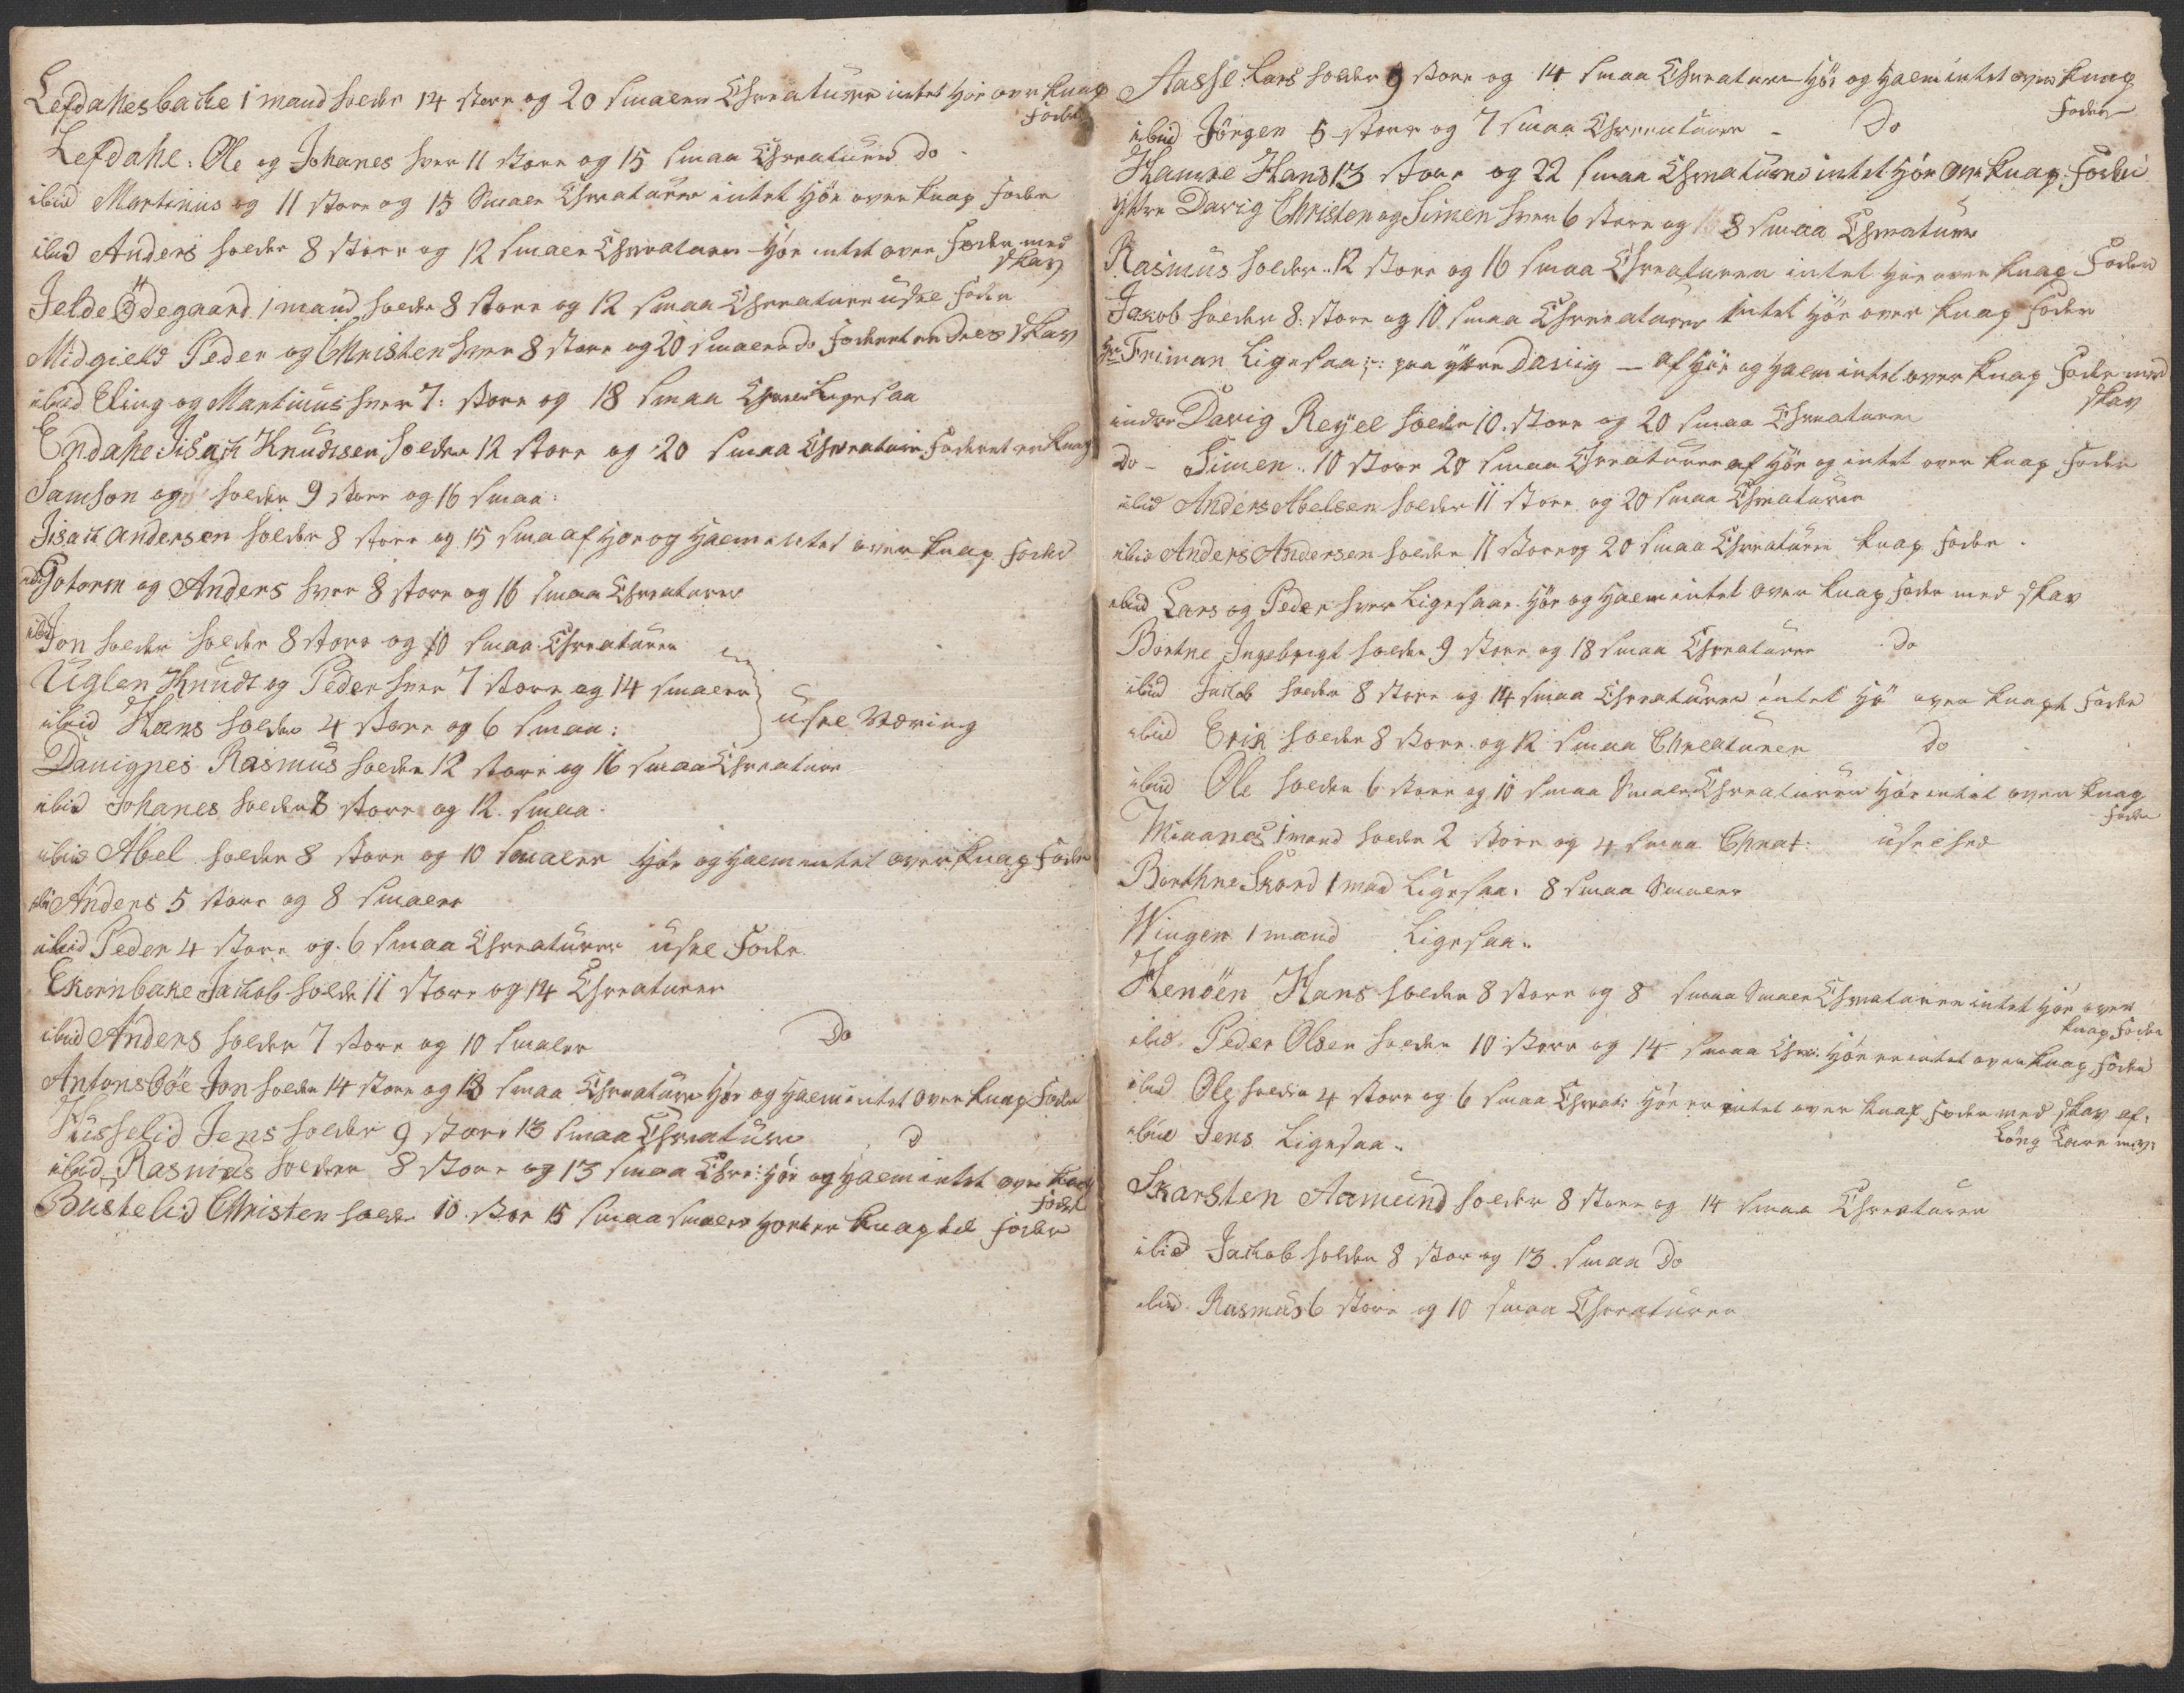 Lefdahesbache 1 mand holder 14 store og 20 smaaer Chreaturer intet Hör over knap
Foder
Lefdahe: Ole og Johanes hver 11 store og 15 smaa Chreaturer do
ibid Martinus og 11 store og 15 Smaaer Chreaturer intet Hör over knap Foder
ibid Anders holder 8 store og 12 smaaer Chreaturer Hör intet over Foder med
skav
Jelde Ödegaard 1 mand holder 8 store og 12 smaa Chreaturer usel Foder
Midgield Peder og Christen hver 8 store og 20 smaaere do Foderet endres skav
ibid Eling og Martinus hver 7: store og 18 smaa Chrea: Ligesaa
Endahe Jisach Knudsen holder 12 store og 20 smaa Chreaturer Foderet er knap
Samson og holder 9 store og 16 smaa:
Jisach Andersen holder 8 store og 15 smaa af Hör og Halm intet over knap Foder
ibid Gotorm og Anders hver 8 store og 16 smaa Chreaturer
ibid Jon holder holder 8 store og 10 smaa Chreaturer
Uglen Knudt og Peder hver 7 store og 14 smaaer
ibid Hans holder 4 store og 6 smaa: usel Voring
Davignes Rasmus holder 12 store og 16 smaa Chreaturer
ibid Johanes holder 8 store og 12 smaa
ibid Abel holder 8 store og 10 smaaer Hör og Halm intet over knap Foder
ibid Anders 5 store og 8 smaaer
ibid Peder 4 store og 6 smaa Chreaturer usel Foder
Ekornbake Jachob holder 11 store og 14 Chreaturer
ibid Anders holder 7 store og 10 smaaer Do
Antonsböe Jon holder 14 store og 18 smaa Chreaturer Hör og Halm intet over knap Foder
Husselid Jens holder 9 store 13 smaa Chreaturer d
ibid Rasmus holder 8 store og 13 smaa Chre: Hör og Halm intet over knap
Foder
Bustelid Christen holder 10 store 15 smaa smaaer knap til Foder
Aasse Lars holder 9 store og 14 smaa Chreaturer Hör og Halm intet over knap
Foder
ibid Jörgen 5 store og 7 smaa Chreaturer - Do
Hamre Hans 13 store og 22 smaa Chreaturer intet Hör over knap Foder
yttre Davig Christen og Simen hver 6 store og 8 smaa Chreaturer
Rasmus holder 12 store og 16 smaa Chreaturer intet Hör over knap Foder
Jakob holder 8: store og 10 smaa Chreaturer intet Hör over knap Foder
Hr Friman Ligesaa :/: paa yttre Davig — af Hör og Halm intet over knap Foder med
skav
indre Davig Reyel holder 10. store og 20 smaa Chreaturer
Do - Simen 10 store 20 smaa Chreaturer af Hör og intet over knap Foder
ibid Anders Abelsen holder 11 store og 20 smaa Chreaturer
ibid Anders Andersen holder 11 store og 20 smaa Chreaturer knap Foder.
ibid Lars og Peder hver Ligesaa. Hör og Halm intet over knap Foder med skav
Bortne Ingebrigt holder 9 store og 18 smaa Chreaturer Do
ibid Jacob holder 8 store og 14 smaa Chreaturer intet Hö over knapt Foder
ibid Erik holder 8 store og 12 smaa Chreaturer do
ibid Ole holder 6 store og 10 smaa Smaaer Chreaturer Hör intet over knap
Foder
Miaanes 1 mand holder 2 store og 4 smaa Chreat:
Borthne Skord 1 mand Ligesaa. 8 smaa Smaaer
Wingen 1 mand Ligesaa.
Henöen Hans holder 8 store og 8 smaa Smaaer Chreaturer intet Hör over
knap Foder
ibid. Peder Olsen holder 10 store og 14 smaa Chre: Hör er intet over knap Foder
ibid Ole holder 4 store og 6 smaa Chreat: Hör er intet over knap Foder med skav af:
Löug Tare mv:
ibid Jens Ligesaa.
Skarsten Aamund holder 8 store og 14 smaa Chreaturer
ibid Jachob holder 8 store og 13 smaa Do
ibid. Rasmus 6 store og 10 smaa Chreaturer